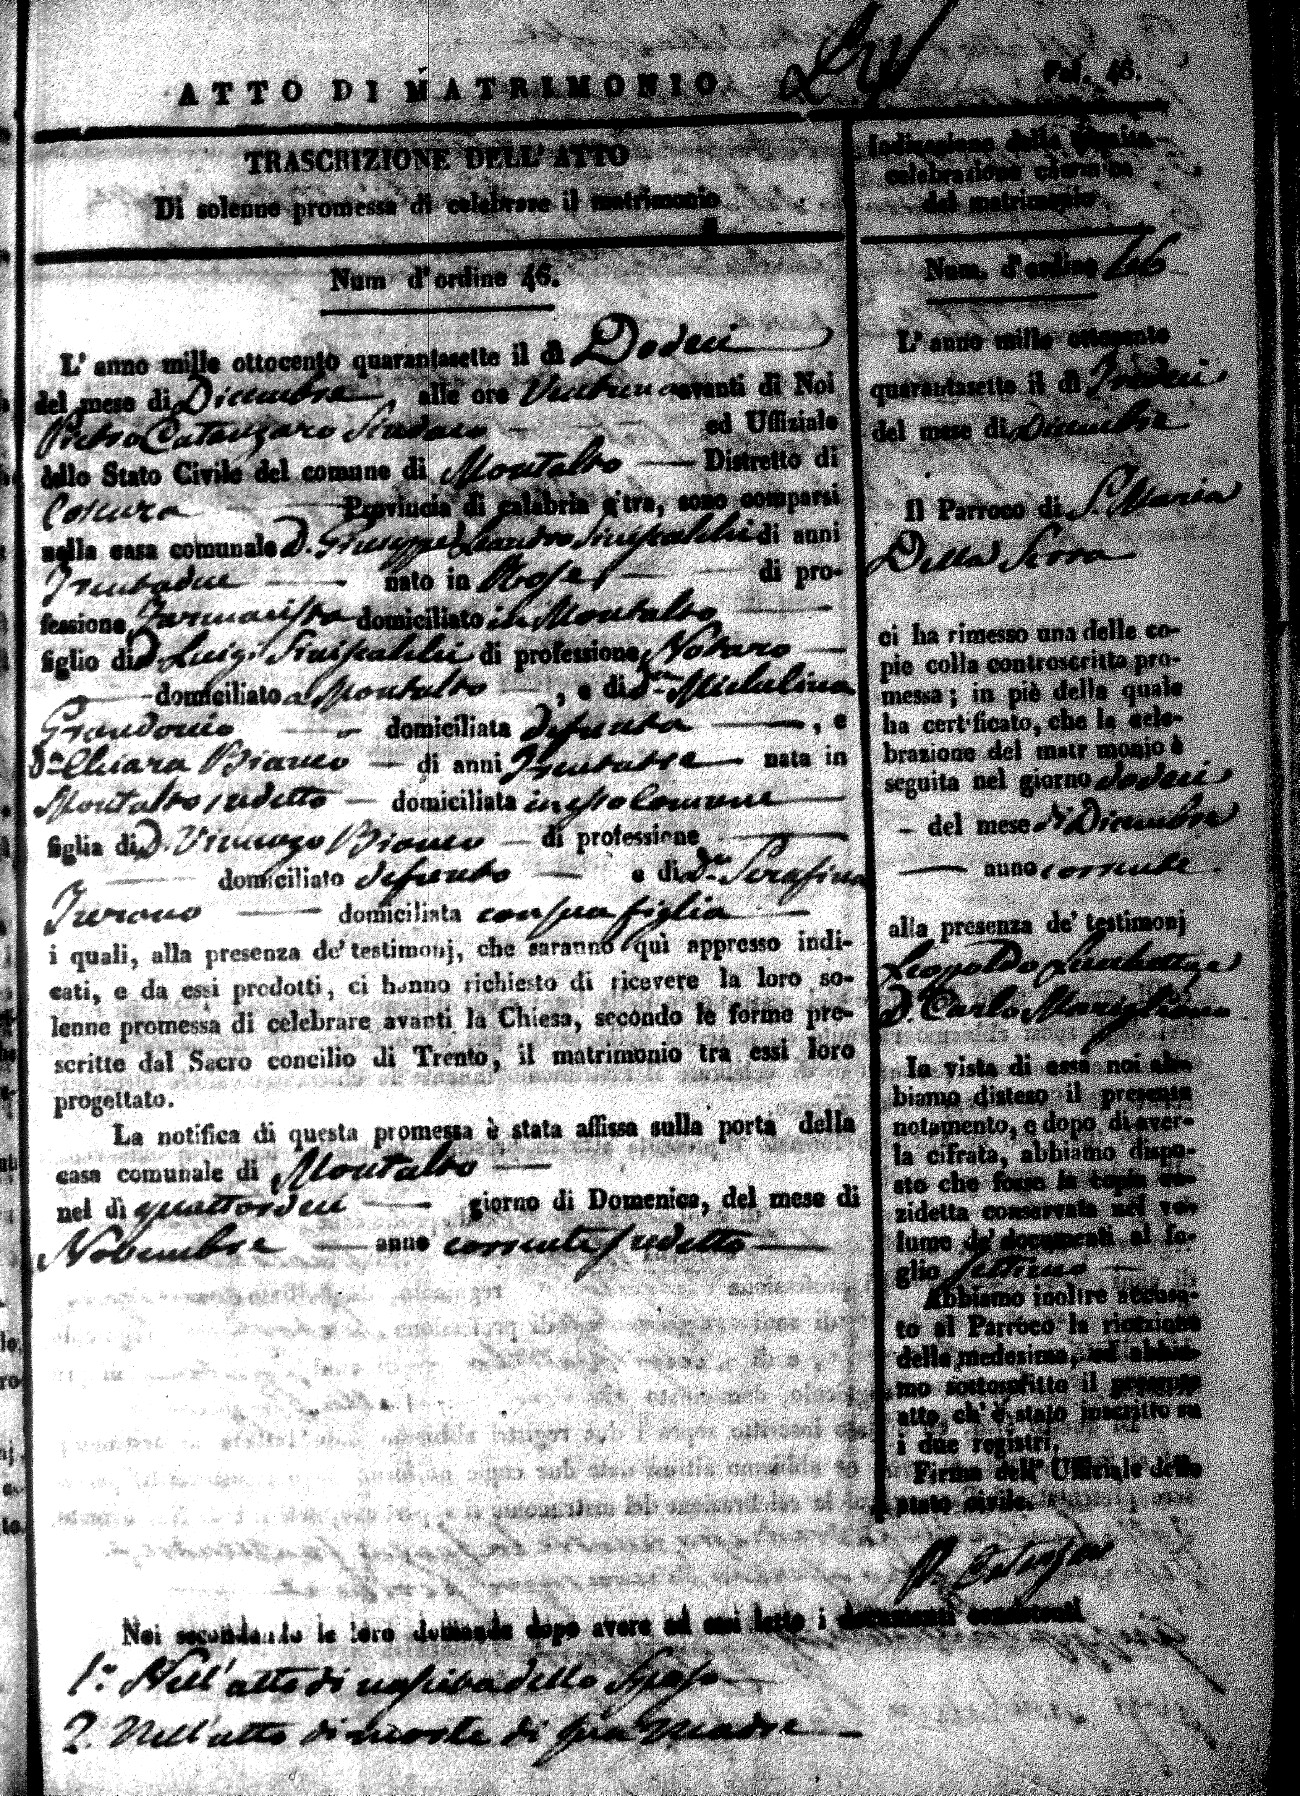 ATTO DI MATRIMONIO
Fol. 46.
TRASCRIZIONE DELL' ATTO
Di solenne promessa di celebrare il matrimonio
Num d'ordine 46.
L' anno mille ottocento quarantasette il dì Dodeci
del mese di Dicembre, alle ore Ventuno avanti di Noi
Pietro Catanzaro Sindaco ed Uffiziale
dello Stato Civile del comune di Montalto Distretto di
Cosenza Provincia di calabria citra, sono comparsi
nella casa comunale D. Giuseppe Leandro Siniscalchi di anni
Trentadue nato in Rose, di pro-
fessione Farmacista domiciliato in Montalto
figlio di D. Luigi Siniscalchi di professione Notaro
domiciliato a Montalto, e di D.na Michelina
domiciliata defunta, e
D.na Chiara Bianco di anni Trentatre nata in
Montalto sudetto domiciliata in esso Comune
figlia di D. Vincenzo Bianco di professione
domiciliato defunto e di D.na Serafina
domiciliata con sua figlia
i quali, alla presenza de' testimonj, che saranno quì appresso indi-
cati, e da essi prodotti, ci hanno richiesto di ricevere la loro so-
lenne promessa di celebrare avanti la Chiesa, secondo le forme pre-
scritte dal Sacro concilio di Trento, il matrimonio tra essi loro
progettato.
La notifica di questa promessa è stata affissa sulla porta della
casa comunale di Montalto
nel dì quattordeci giorno di Domenica, del mese di
Novembre anno corrente sudetto
Indicazione della seguita
celebrazione
del matrimonio
Num. d'ordine 46
L' anno mille ottocento
quarantasette il dì Tredeci
del mese di Dicembre
Il Parroco di S. Maria
Della Serra
ci ha rimesso una delle co-
pie colla controscritta pro-
messa; in piè della quale
ha certificato, che la cele-
brazione del matrimonio è
seguita nel giorno dodeci
del mese di Dicembre
anno corrente.
alla presenza de' testimonj
Leopoldo e
D. Carlo
In vista di essa noi ab-
biamo disteso il presente
notamento, e dopo di aver-
la cifrata, abbiamo dispo-
sto che fosse la copia an-
zidetta conservata nel vo-
lume de' documenti al fo-
glio settimo
Abbiamo inoltre accusa-
to al Parroco la ricezione
della medesima, ed abbia-
mo sottoscritto il presente
atto, ch' è stato inscritto su
i due registri.
Firma dell' Uffiziale dello
stato civile.
Noi secondando la loro domanda dopo avere ad essi letto i documenti consistenti
1.° Nell' atto di nascita dello Sposo
2. Nell' atto di morte di sua Madre